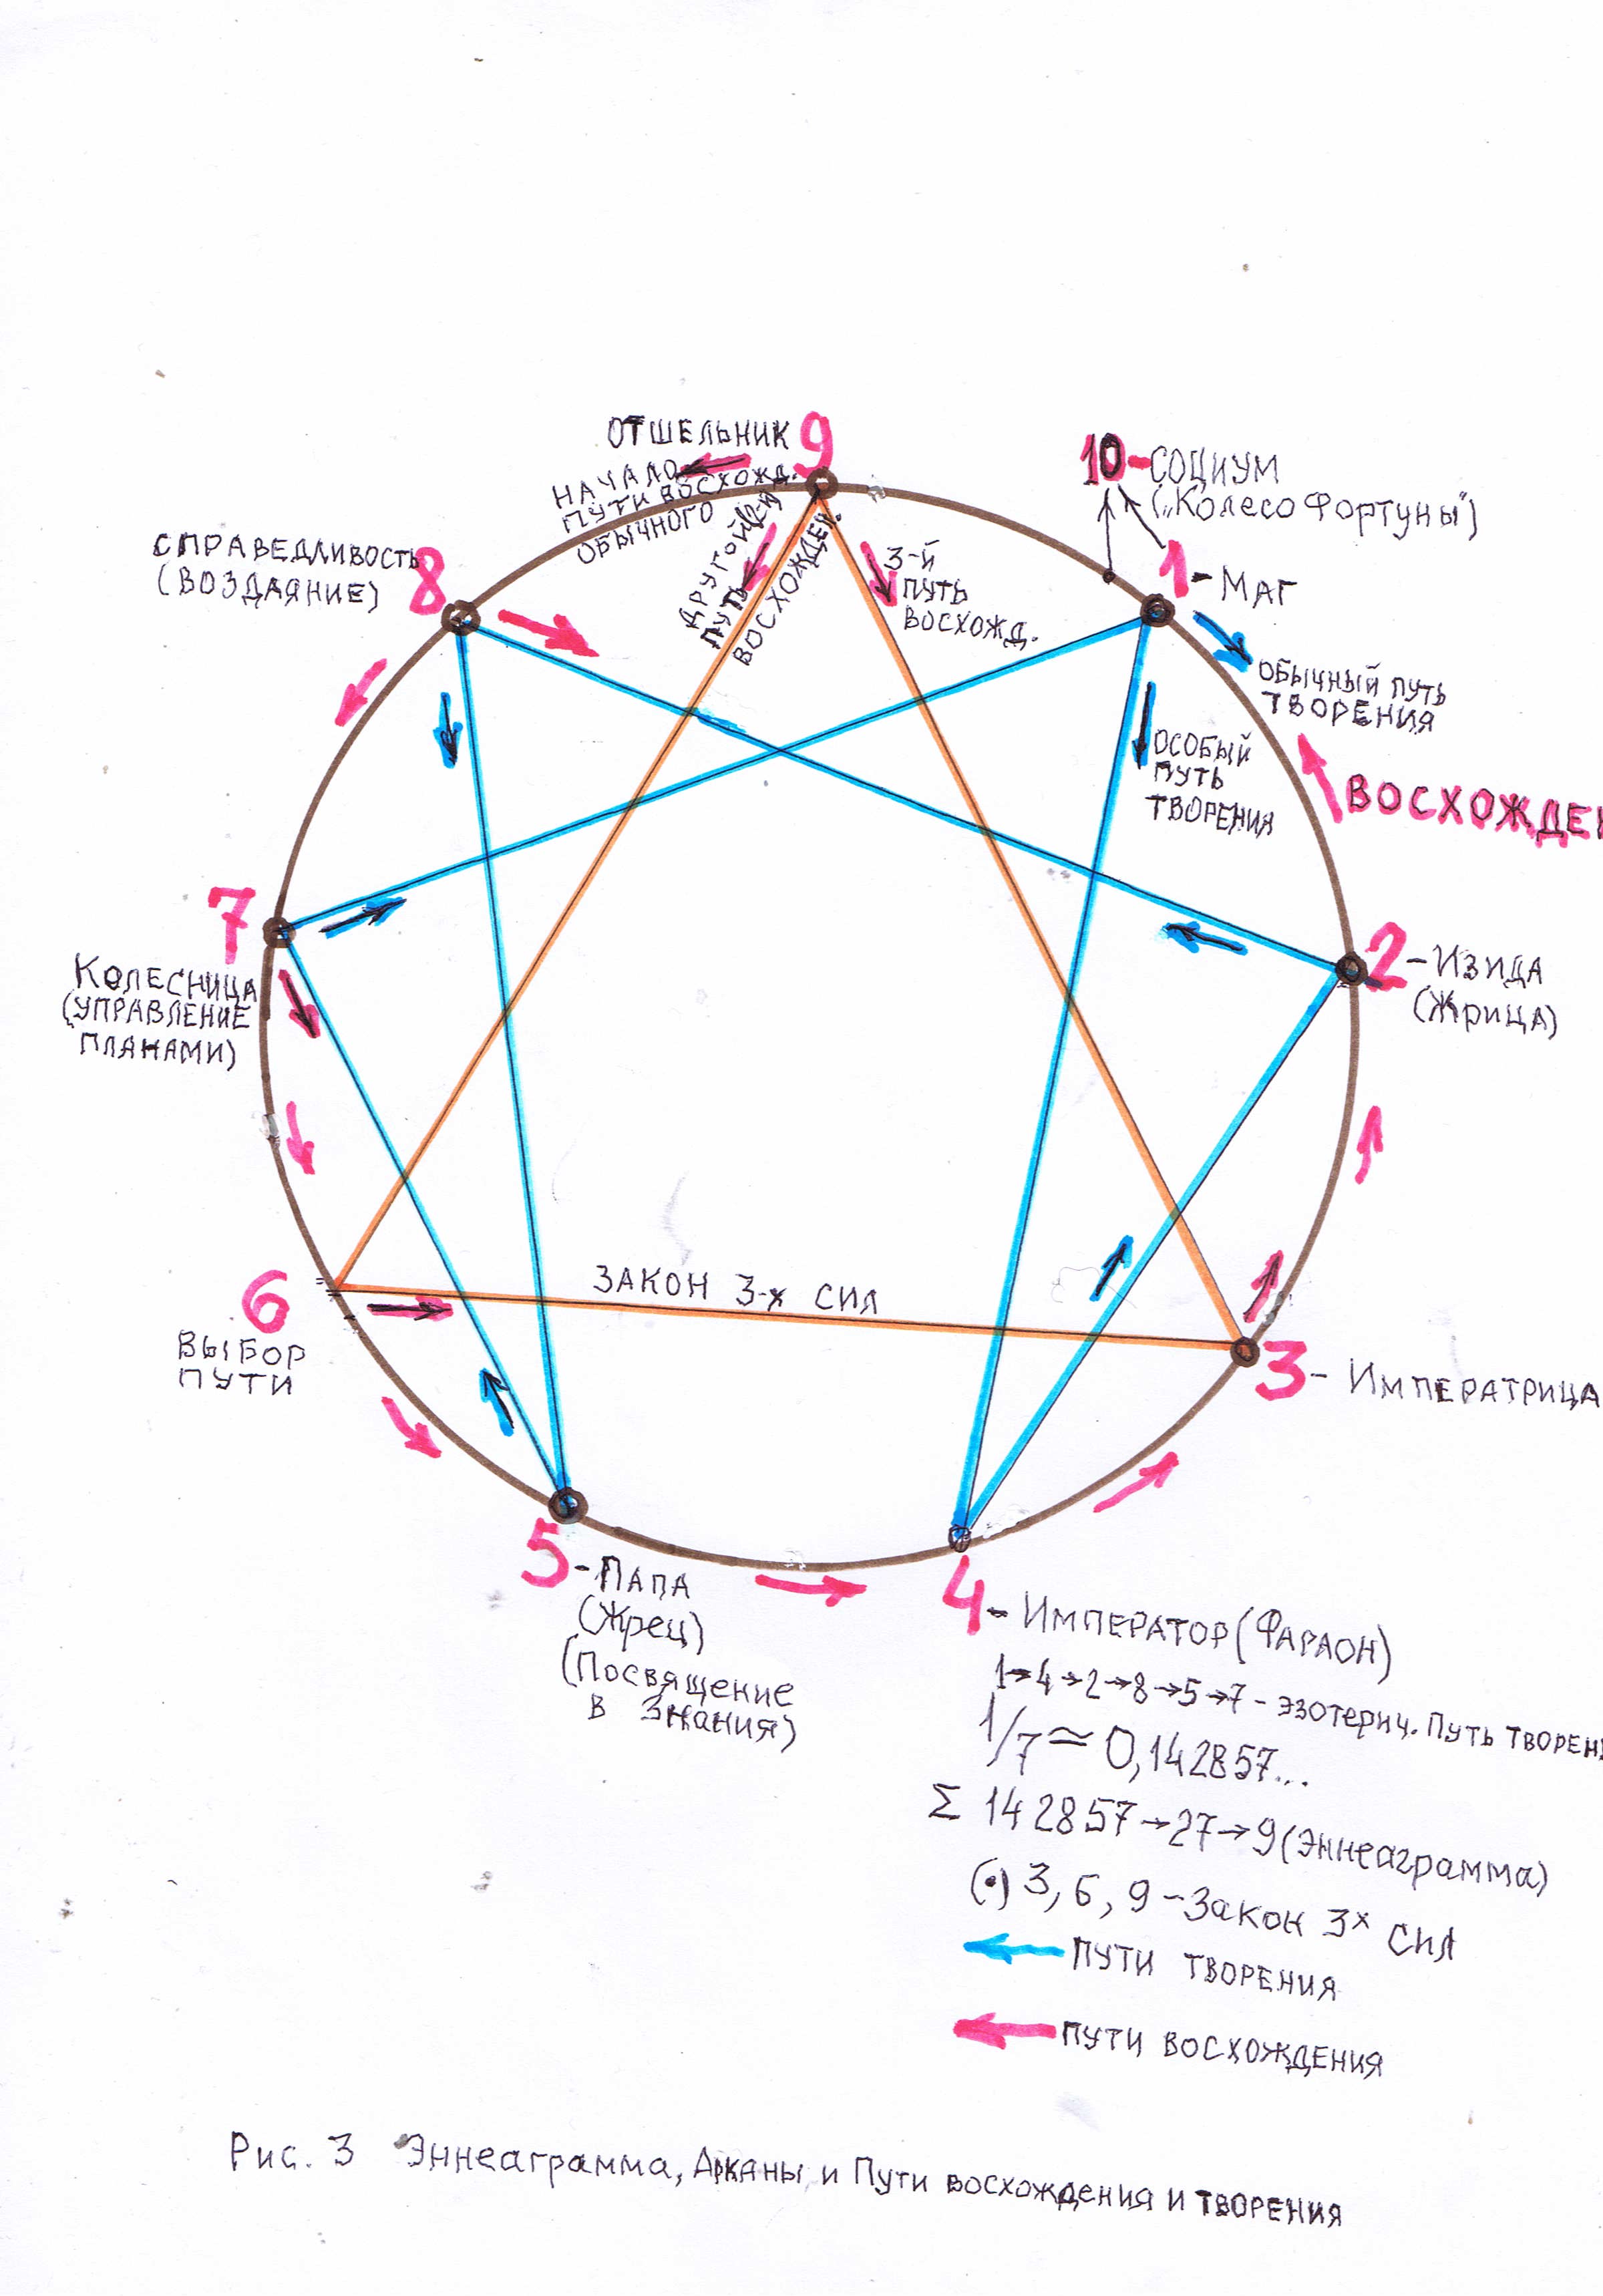 ОТШЕЛЬНИК 9
НАЧАЛО
ПУТИ ВОСХОЖД.
ОБЫЧНОГО
ДРУГОЙ
ПУТЬ
ВОСХОЖДЕН.
3-Й
ПУТЬ
ВОСХОЖД.
10-СОЦИУМ
(„Колесо Фортуны")
1-МАГ
ОБЫЧНЫЙ ПУТЬ
ТВОРЕНИЯ
ОСОБЫЙ
ПУТЬ
ТВОРЕНИЯ
ВОСХОЖДЕН
СПРАВЕДЛИВОСТЬ
(ВОЗДАЯНИЕ) 8
7
КОЛЕСНИЦА
(УПРАВЛЕНИЕ
ПЛАНАМИ)
2-ИЗИДА
(Жрица)
ЗАКОН 3-х СИЛ
6
ВЫБОР
ПУТИ
3- ИМПЕРАТРИЦА
5-ПАПА
(Жрец)
(Посвящение
в Знания)
4- ИМПЕРАТОР (ФАРАОН)
1→4→2→8→5→7 - эзотерич. ПУТЬ ТВОРЕН
1/7 ≃ 0,142857...
Σ 142857→27→9 (Эннеаграмма)
(•) 3, 6, 9 - Закон 3х сил
ПУТИ ТВОРЕНИЯ
ПУТИ ВОСХОЖДЕНИЯ
Рис. 3 Эннеаграмма, Арканы и Пути восхождения и творения